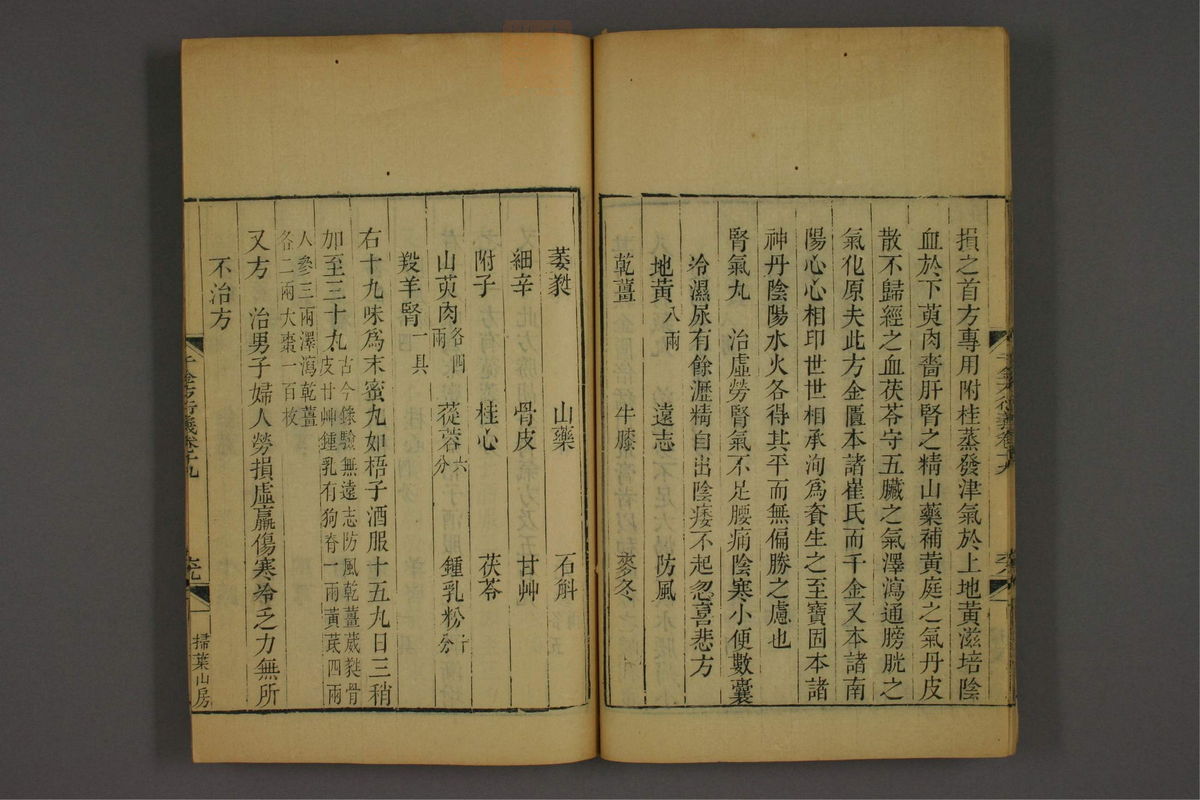 損之首方專用附桂蒸發津氣於上地黃滋培陰
血於下萸肉嗇肝腎之精山藥補黃庭之氣丹皮
散不歸經之血茯苓守五臟之氣澤瀉通膀胱之
氣化原夫此方金匱本諸崔氏而千金又本諸南
陽心心相印世世相承洵爲養生之至寶固本諸
神丹陰陽水火各得其平而無偏勝之慮也
腎氣丸　治虛勞腎氣不足腰痛陰寒小便數囊
冷濕尿有餘瀝精自出陰痿不起忽喜悲方
地黃八兩　遠志　防風
乾薑　牛膝　麥冬
萎蕤　山藥　石斛
細辛　骨皮　甘艸
附子　桂心　茯苓
山萸肉各四兩　蓯蓉六分　鍾乳粉十分
羖羊腎一具
右十九味爲末蜜丸如梧子酒服十五丸日三稍
加至三十丸古今錄驗無遠志防風乾薑葳蕤骨
皮甘艸鍾乳有狗脊一兩黃芪四兩
人參三兩澤瀉乾薑
各二兩大棗一百枚
又方　治男子婦人勞損虛羸傷寒冷乏力無所
不治方
千金方衍義卷十九
掃葉山房